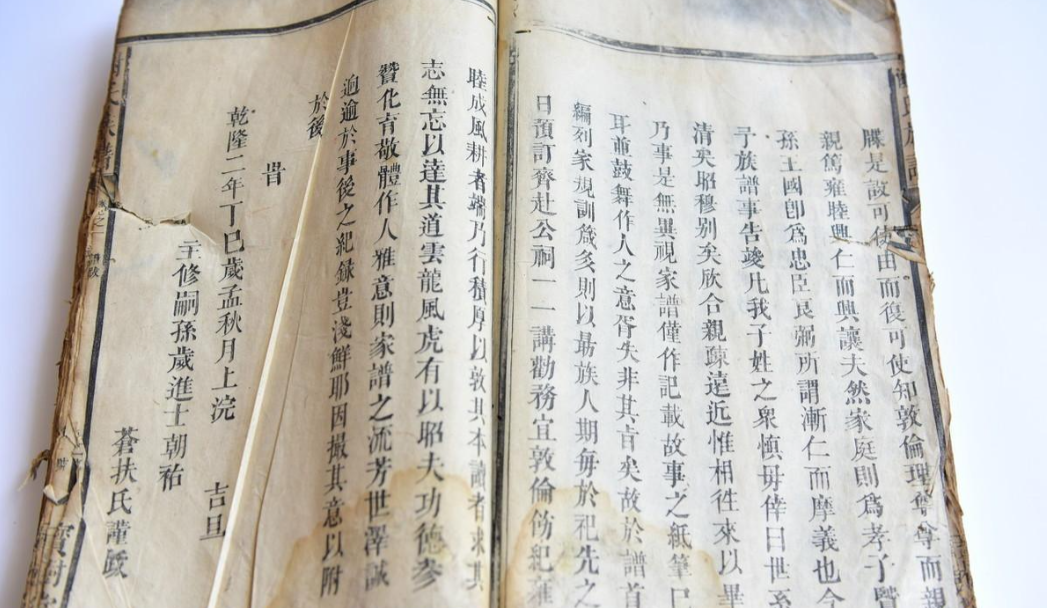 牒是設可使由而復可使知敦倫理孳孳而親
親篤雍睦興仁而興讓夫然家庭則為孝子賢
孫王國卽為忠臣良弼所謂漸仁而摩義也今
子族譜事告竣凡我子姓之衆慎毋倖曰世系
清矣昭穆別矣欣合親疎遠近惟相徃來以畢
乃事是無異視家譜僅作記載故事之紙筆已
耳前鼓舞作人之意胥失非其旨矣故於譜首
編列家規訓箴多則以朂族人期每於祀先之
日預訂齊赴公祠一一講勸務宜敦倫飭紀雍
睦成風耕者端乃行積厚以敦其本讀者求其
志無忘以達其道雲龍風虎有以昭夫功德參
贊化育敬體作人雅意則家譜之流芳世澤誠
逈逾於事後之紀録豈淺鮮耶因撮其意以附
於後
旹
乾隆二年丁巳歲孟秋月上浣 吉旦
主修嗣孫歲進士朝祐
蒼扶氏謹跋